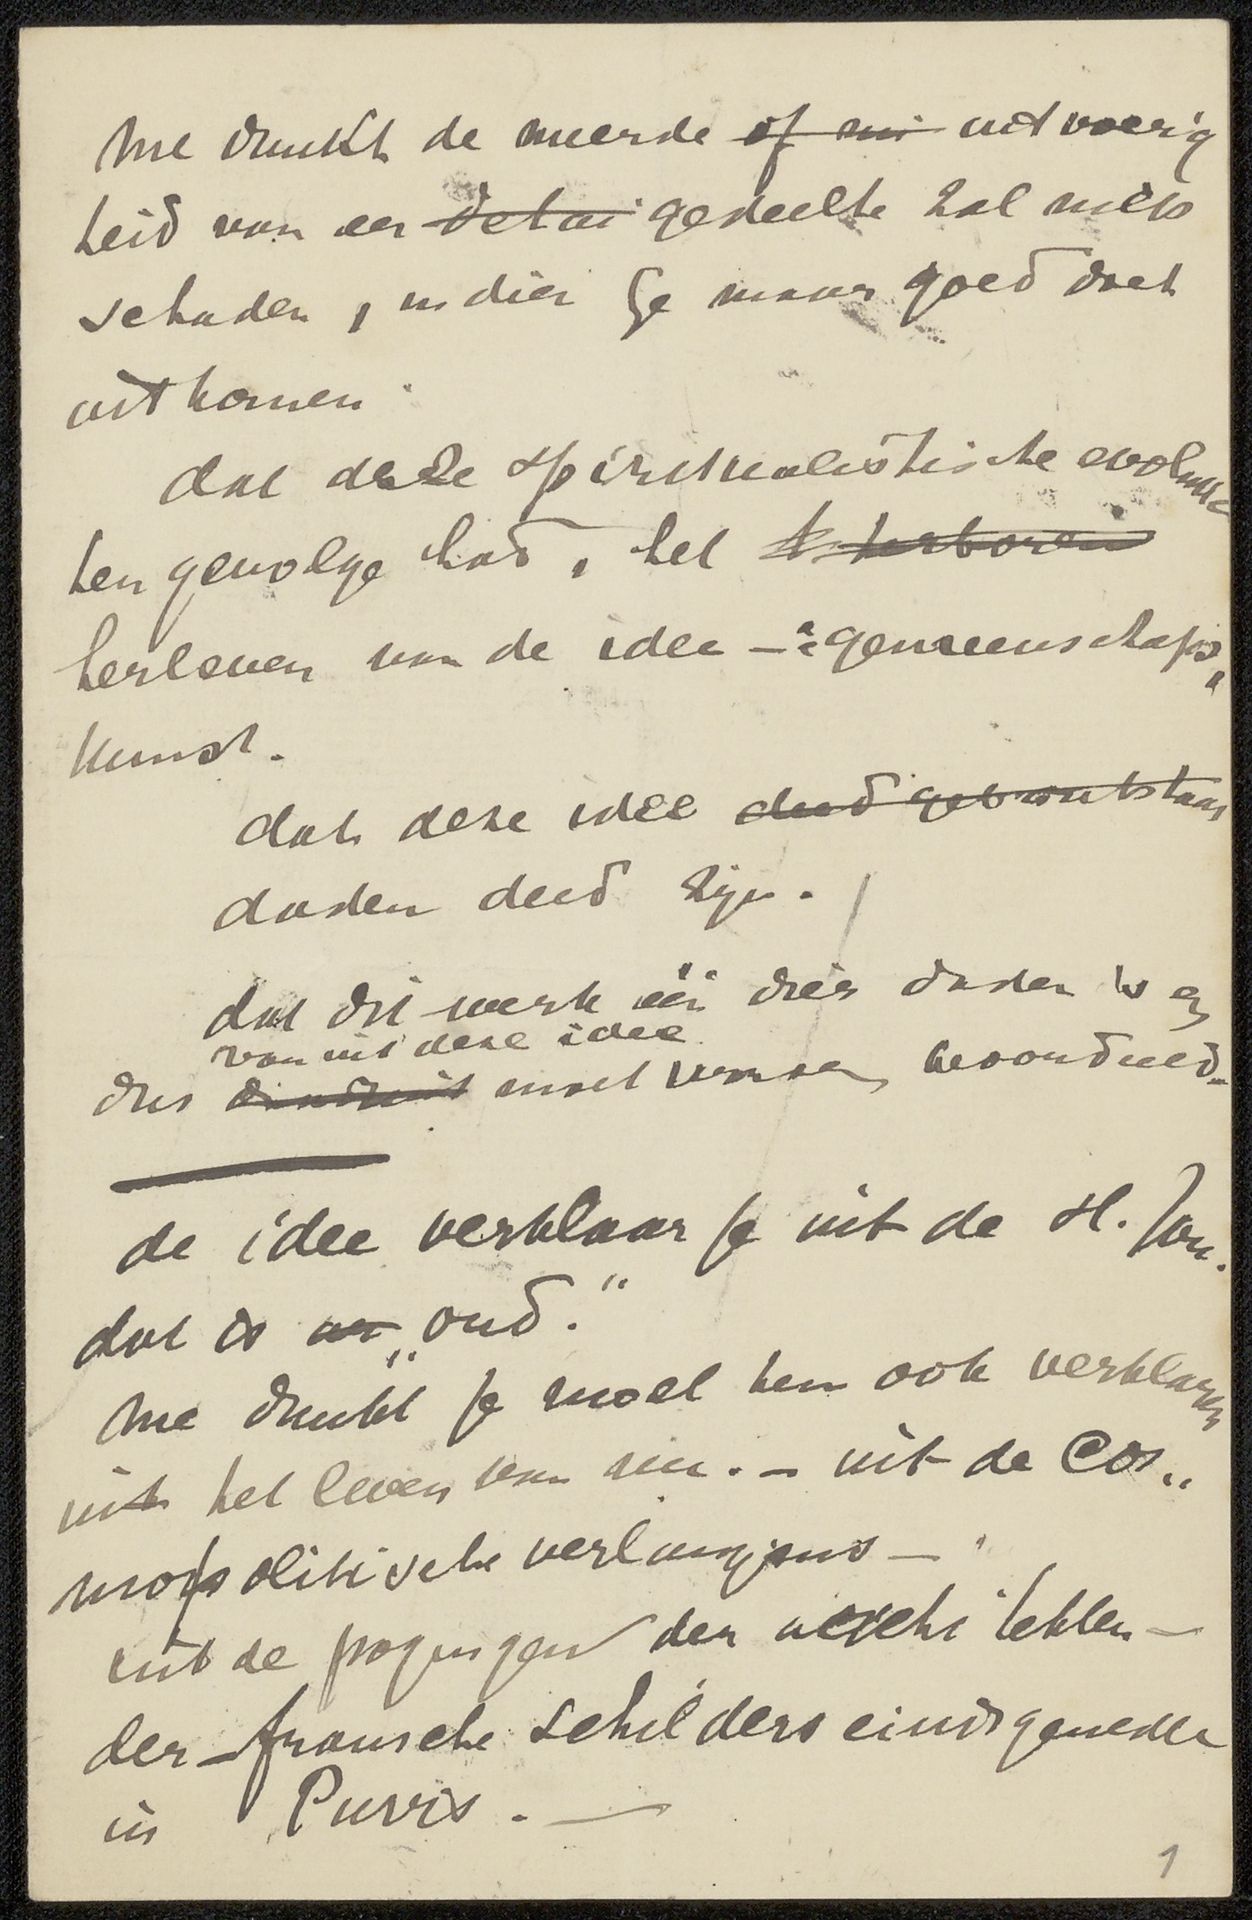 me dunkt de meerde of mi uitvoerig
heid van een detai gedeelte zal niets
schaden, indien je maar goed doet
uitkomen.
dat deze spiritualistische evolutie
ten gevolge had, het herboren
herleven van de idee - "gemeenschaps"
kunst.
dat deze idee deed geb ontstaan
daden deed zijn.
dat dit werk één dier daden is en
van uit deze idee
dus daaruit moet worden beoordeeld.
de idee verklaar je uit de H. Jan.
dat is een „oud."
Me dunkt je moet hem ook verklaren
uit het leven van nu. - uit de Cos„
mopolitische verlangens -
uit de pogingen der architekten -
der fransche schilders eindigende
in Puvis. -
1